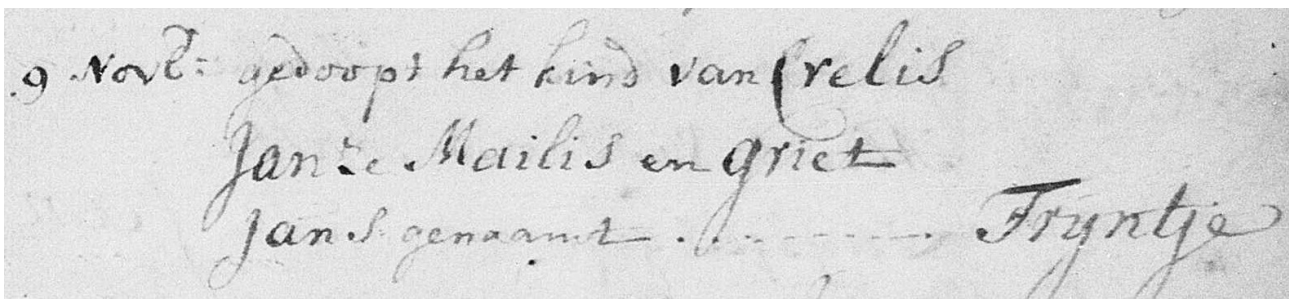 9 Novb: gedoopt het kind van Crelis
Janze Mailis en Griet
Jans genaamt . . . . . . . . . Tryntje